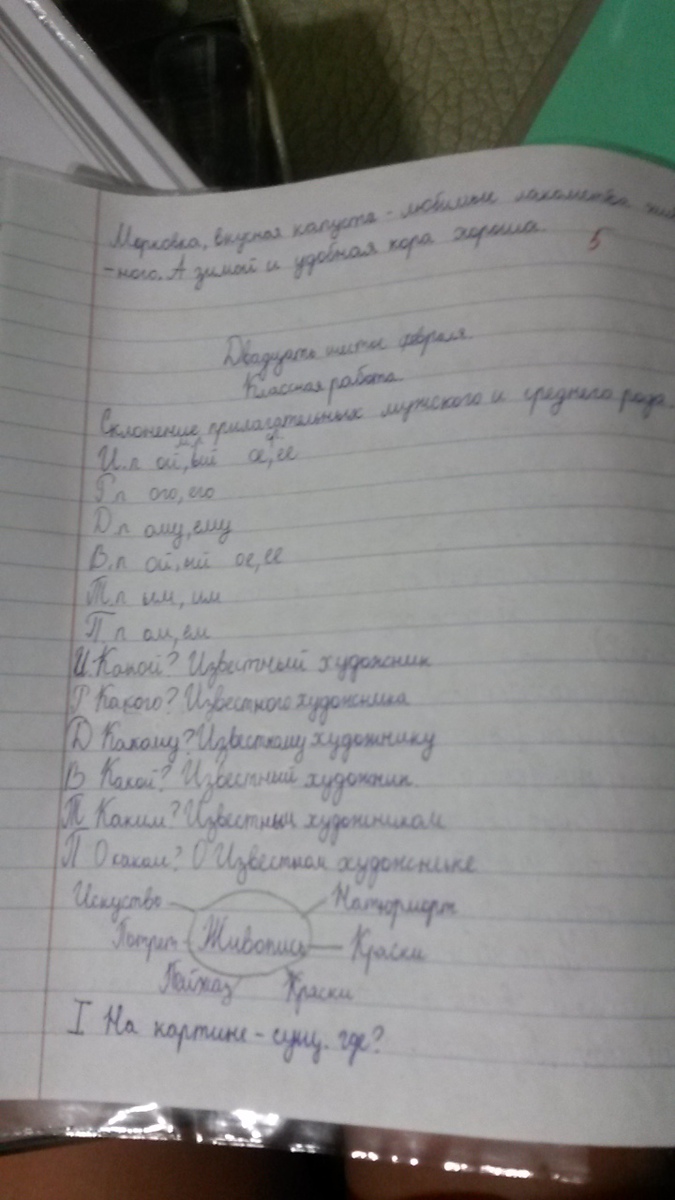 Морковка, вкусная капуста - любимые лакомства
-ного. А зимой и удобная кора хороша.
5
Двадцать шестое февраля.
Классная работа.
Склонение прилагательных мужского и среднего рода
м.р ср
И.п ой, ый ое, ее
Р.п ого, его
Д.п ому, ему
В.п ой, ый ое, ее
Т.п ым, им
П.п ом, ем
И. Какой? Известный художник
Р Какого? Известного художника
Д Какому? Известному художнику
В Какой? Известний художник.
Т Каким? Известным художником
П О каком? О Известном художнике
Искуство Натюрморт
Потрет Живопись Краски
Пейжаз Краски
I На картине - сущ. где?